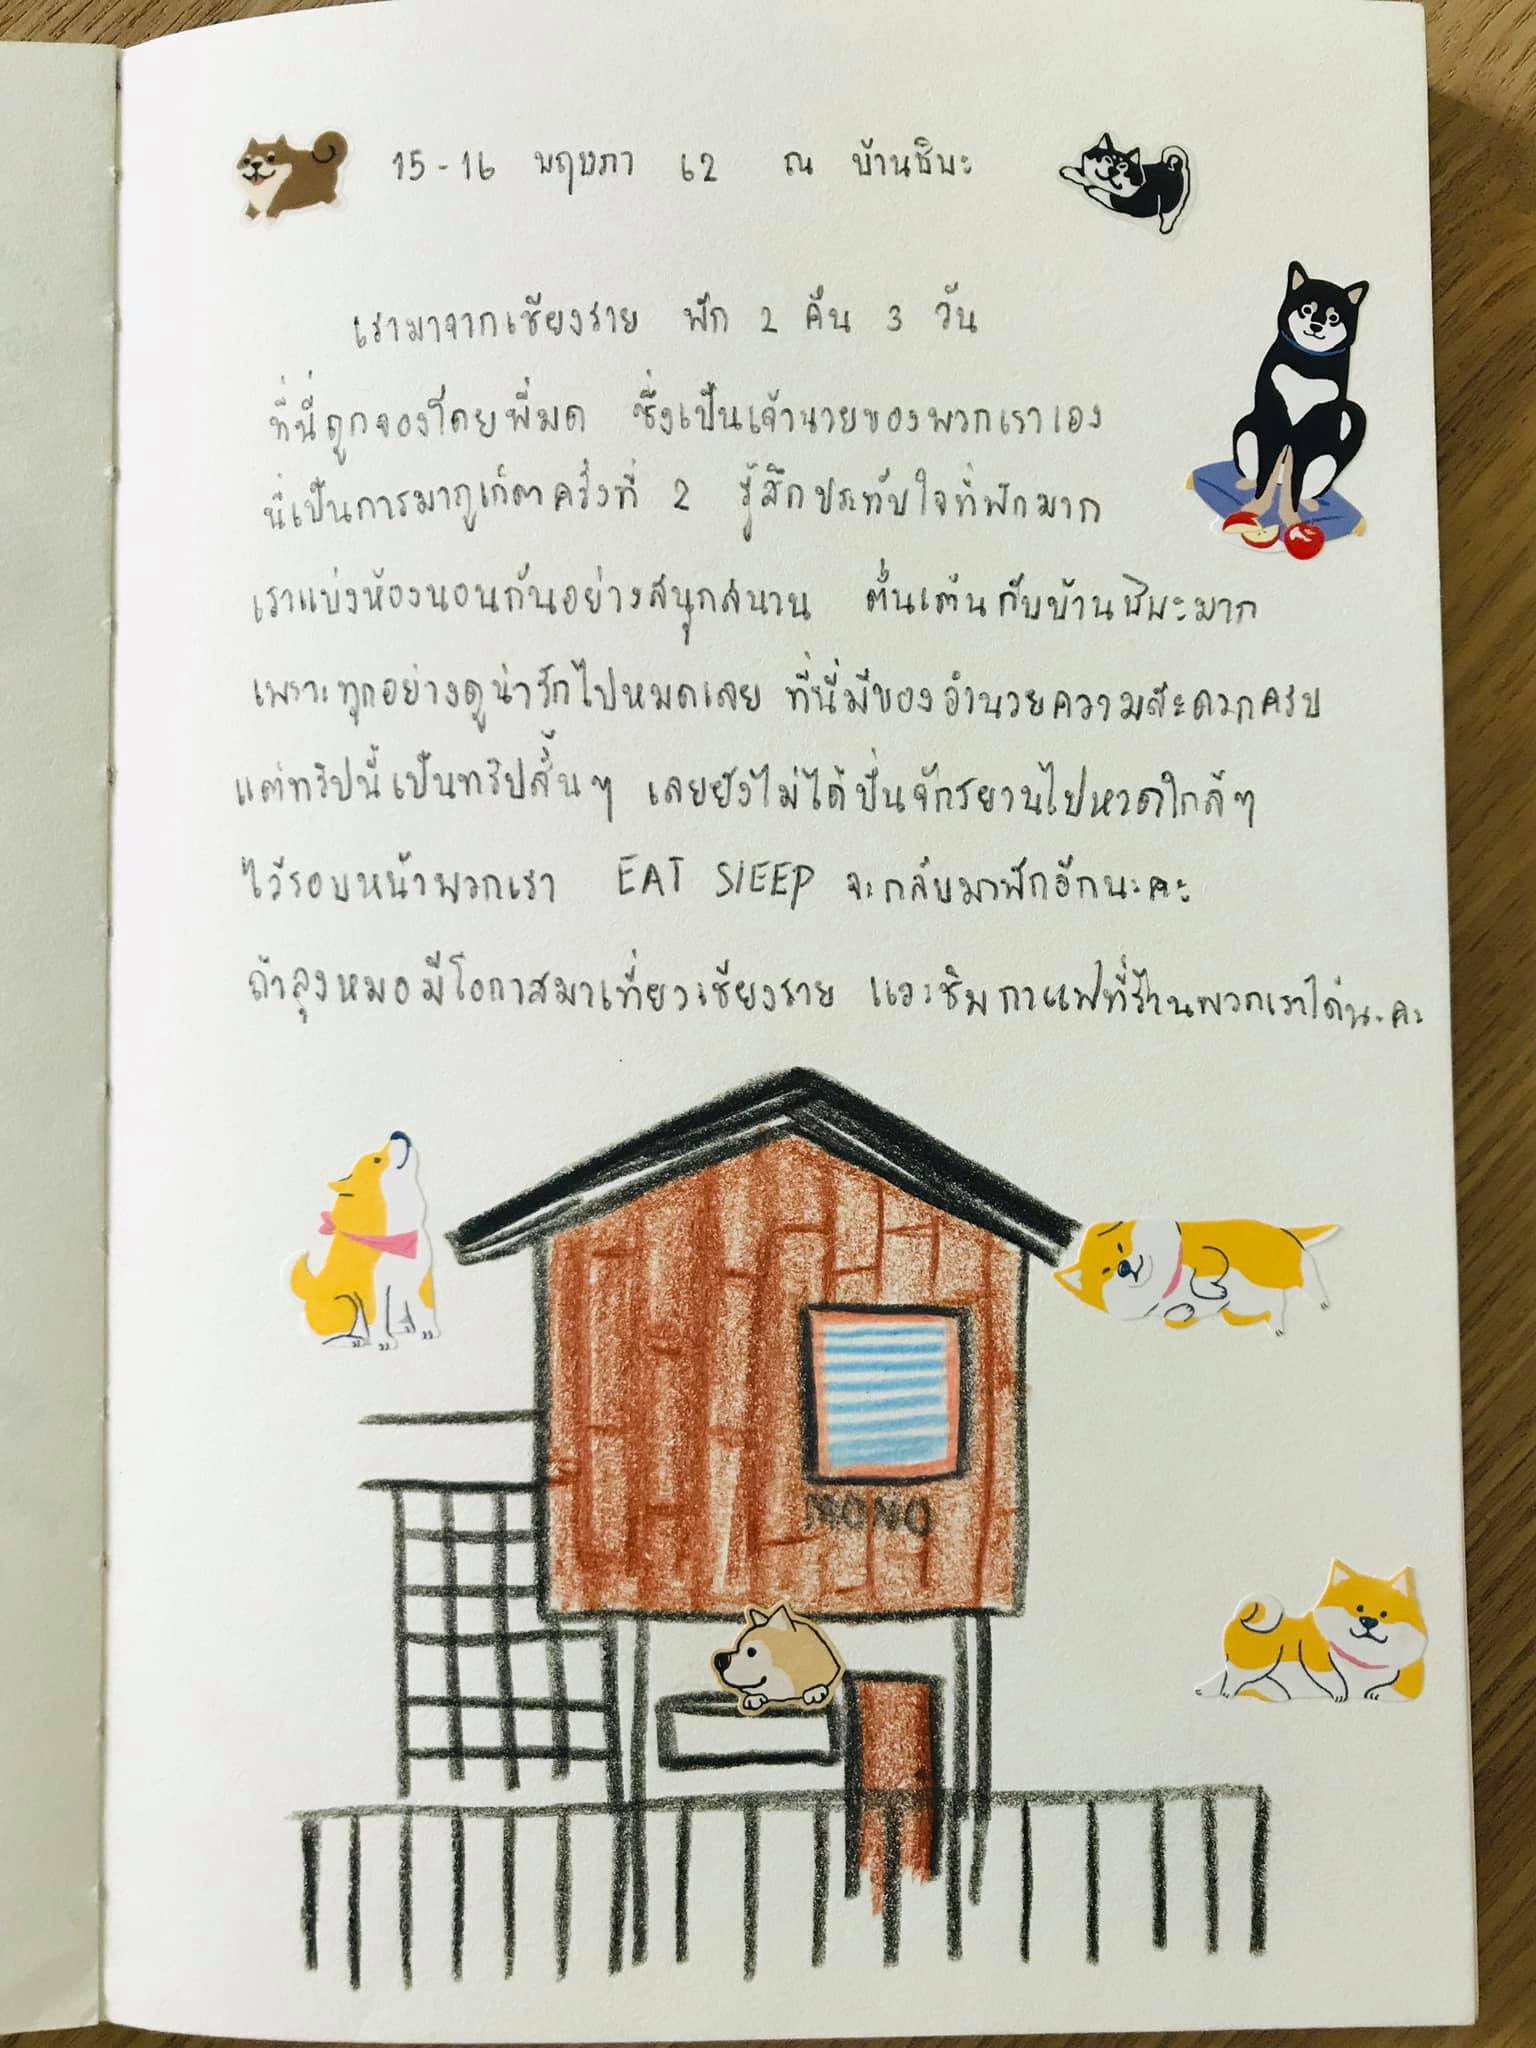 15-16 พฤษภา 62 ณ บ้านชิบะ
เรามาจากเชียงราย พัก 2 คืน 3 วัน
ที่นี่ถูกจองโดยพี่มด ซึ่งเป็นเจ้านายของพวกเราเอง
นี่เป็นการมาภูเก็ตครั้งที่ 2 รู้สึกประทับใจที่พักมาก
เราแบ่งห้องนอนกันอย่างสนุกสนาน ตื่นเต้นกับบ้านชิบะมาก
เพราะทุกอย่างดูน่ารักไปหมดเลย ที่นี่มีของอำนวยความสะดวกครบ
แต่ทริปนี้เป็นทริปสั้นๆ เลยยังไม่ได้ปั่นจักรยานไปหาดใกล้ๆ
ไว้รอบหน้าพวกเรา EAT SLEEP จะกลับมาพักอีกนะคะ
ถ้าลุงหมอมีโอกาสมาเที่ยวเชียงราย แวะชิมกาแฟที่ร้านพวกเราได้นะคะ
MONO